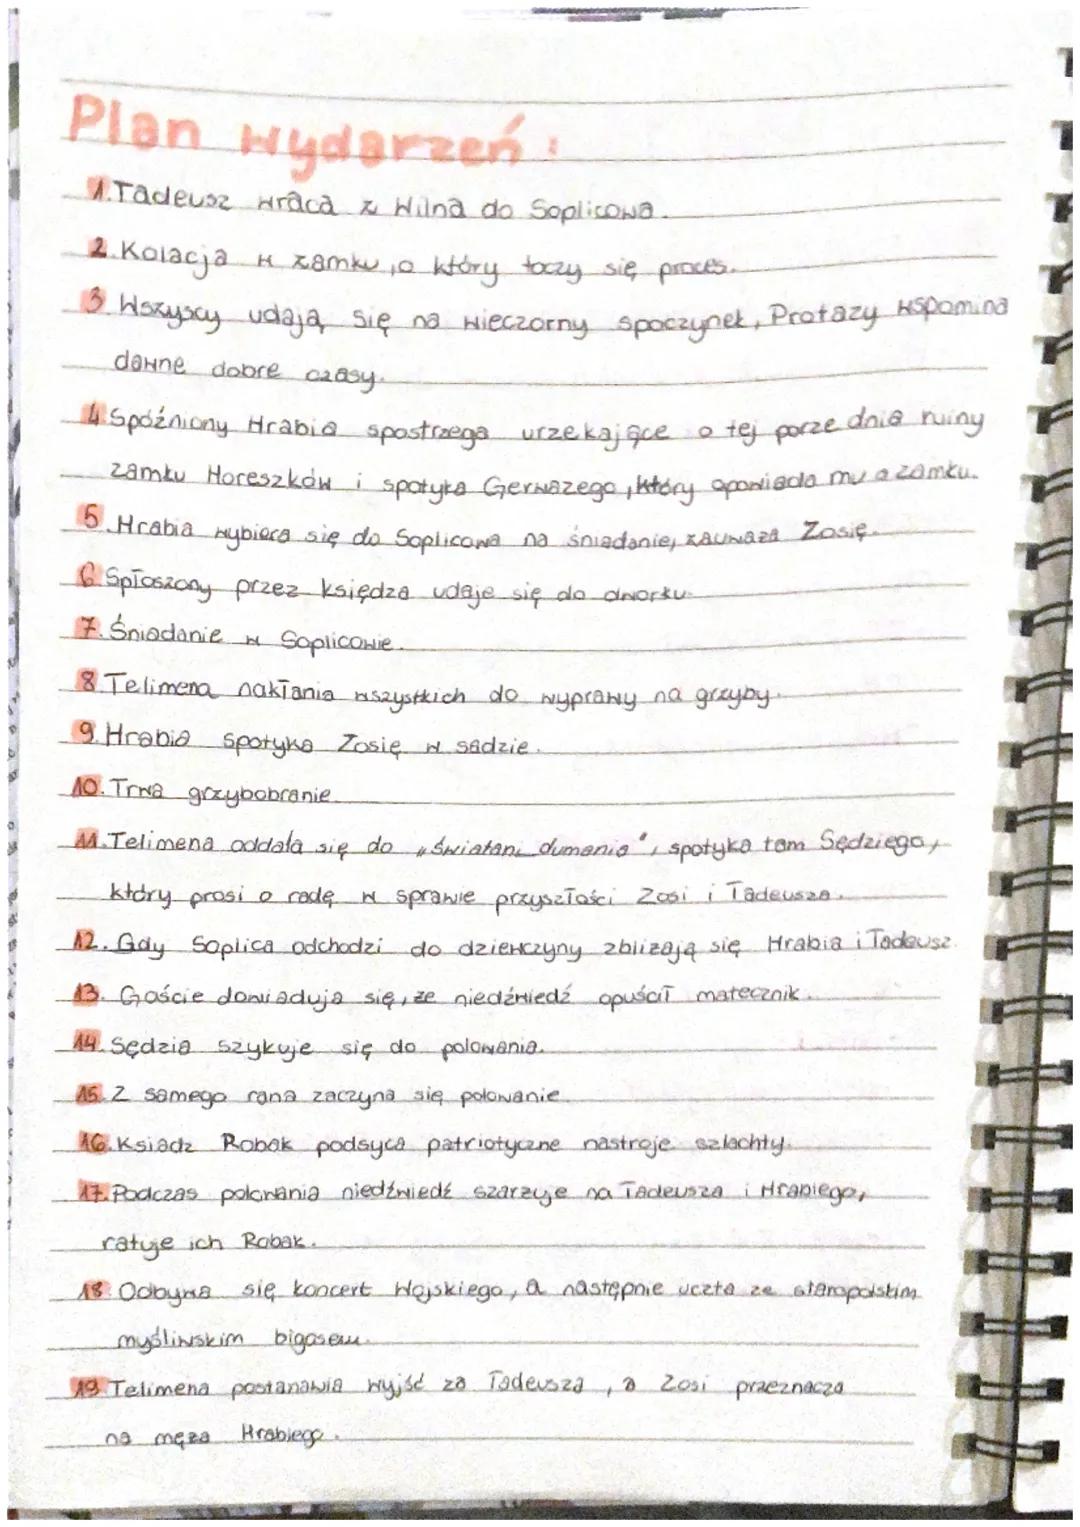 Plan wydarzeń:
1. Tadeusz wraca z Wilna do Soplicowa.
2. Kolacja w zamku, o który toczy się proces.
3. Wszyscy udają się na wieczorny spoczynek, Protazy wspomina
dawne dobre czasy.
4. Spóźniony Hrabia spostrzega urzekające o tej porze dnia ruiny
zamku Horeszków i spotyka Gerwazego, który opowiada mu o zamku.
5. Hrabia wybiera się do Soplicowa na śniadanie, zauważa Zosię.
6. Spłoszony przez księdza udaje się do dworku.
7. Śniadanie w Soplicowie.
8. Telimena nakłania wszystkich do wyprawy na grzyby.
9. Hrabia spotyka Zosię w sadzie.
10. Trwa grzybobranie.
11. Telimena oddala się do „świątani dumania", spotyka tam Sędziego,
który prosi o radę w sprawie przyszłości Zosi i Tadeusza.
12. Gdy Soplica odchodzi do dziewczyny zbliżają się Hrabia i Tadeusz.
13. Goście dowiadują się, że niedźwiedź opuścił matecznik.
14. Sędzia szykuje się do polowania.
15. Z samego rana zaczyna się polowanie.
16. Ksiądz Robak podsyca patriotyczne nastroje szlachty.
17. Podczas polowania niedźwiedź szarżuje na Tadeusza i Hrabiego,
ratuje ich Robak.
18. Odbywa się koncert Wojskiego, a następnie uczta ze staropolskim
myśliwskim bigosem.
19. Telimena postanawia wyjść za Tadeusza, a Zosi przeznacza
na męża Hrabiego.